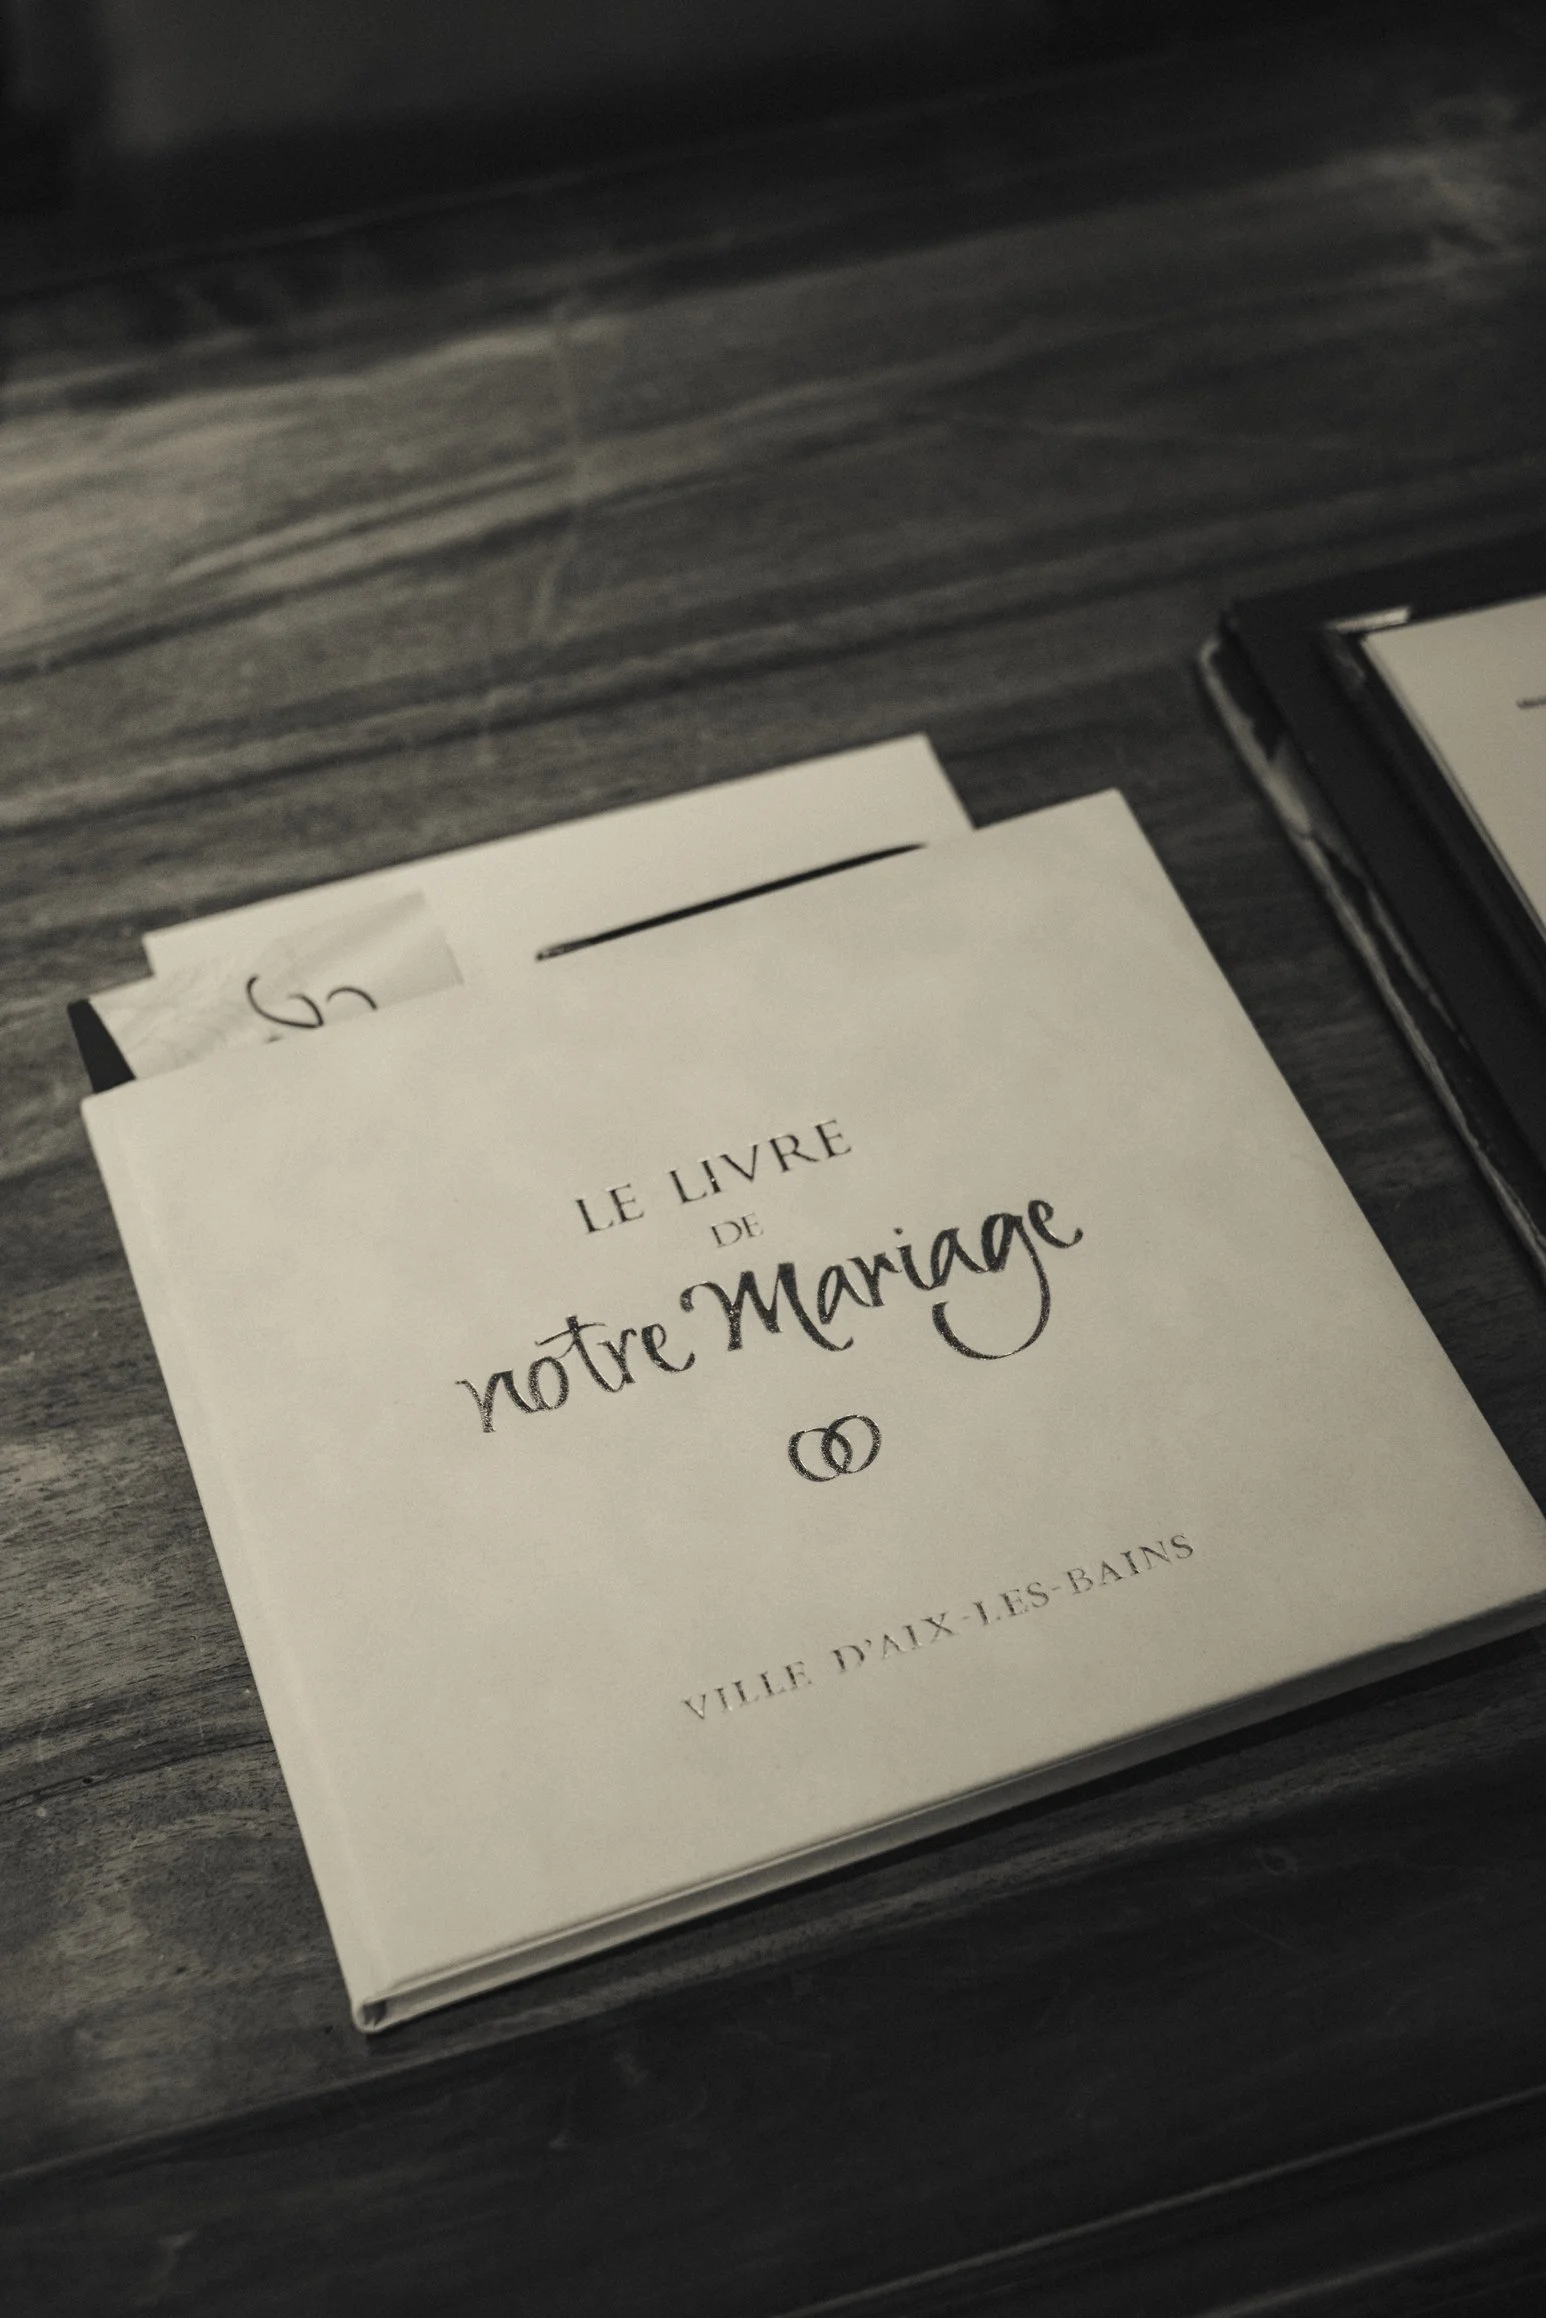 LE LIVRE
DE
notre Mariage
VILLE D'AIX-LES-BAINS